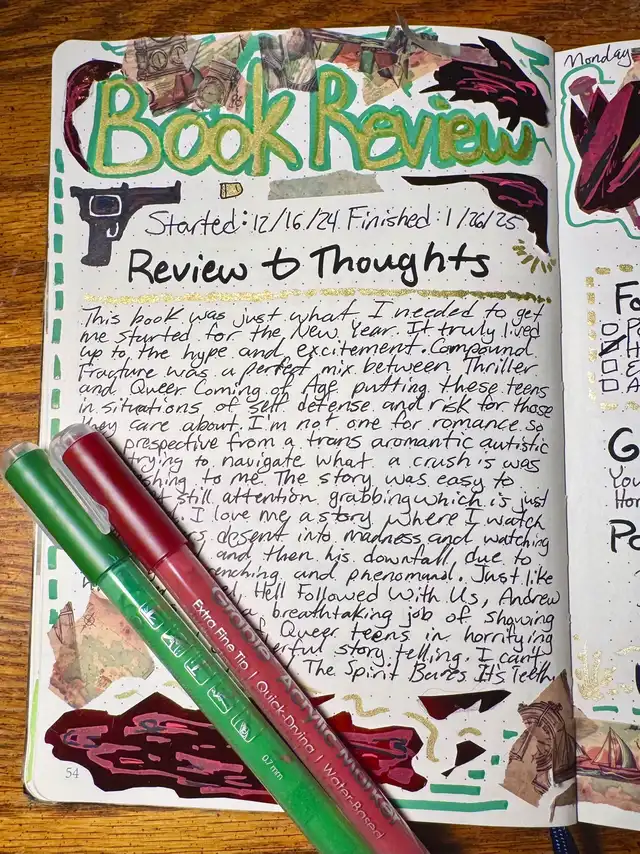 Book Review
Started: 12/16/24 Finished: 1/26/25
Review & Thoughts
This book was just what I needed to get
me started for the New Year. It truly lived
up to the hype and excitement. Compound
Fracture was a perfect mix between Thriller
and Queer Coming of Age putting these teens
in situations of self defense and risk for those
they care about. I'm not one for romance so
prespective from a trans aromantic autistic
trying to navigate what a crush is was
shing to me. The story was easy to
still attention grabbing which is just
I love me a story where I watch
rs desent into madness and watching
and then his downfall due to
renching and phenomanal. Just like
Hell Followed With Us, Andrew
breathtaking job of showing
Queer teens in horrifying
erful story telling. I can't
The Spirit Bares It's Teeth.
54
0.7mm
Extra Fine Tip | Quick-Drying | Water-Based
Acrylic Marker
Monday
Fo
P
E
A
G
You
Hor
Po